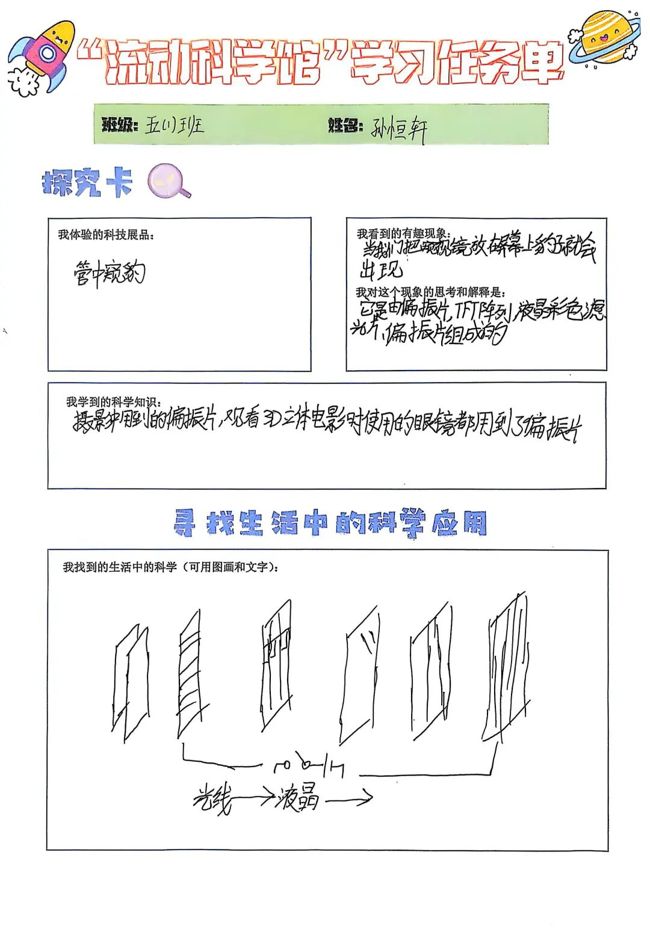 “流动科学馆”学习任务单
班级: 五(1)班 姓名: 孙恒轩
探究卡
我体验的科技展品:
管中窥豹
我看到的有趣现象:
当我们把 镜放在屏幕上豹 就会
出现
我对这个现象的思考和解释是:
它是由偏振片,TFT阵列,液晶彩色滤
光片,偏振片组成的
我学到的科学知识:
摄影中用到的偏振片,观看3D立体电影时使用的眼镜都用到了偏振片
寻找生活中的科学应用
我找到的生活中的科学(可用图画和文字):
光线→液晶→